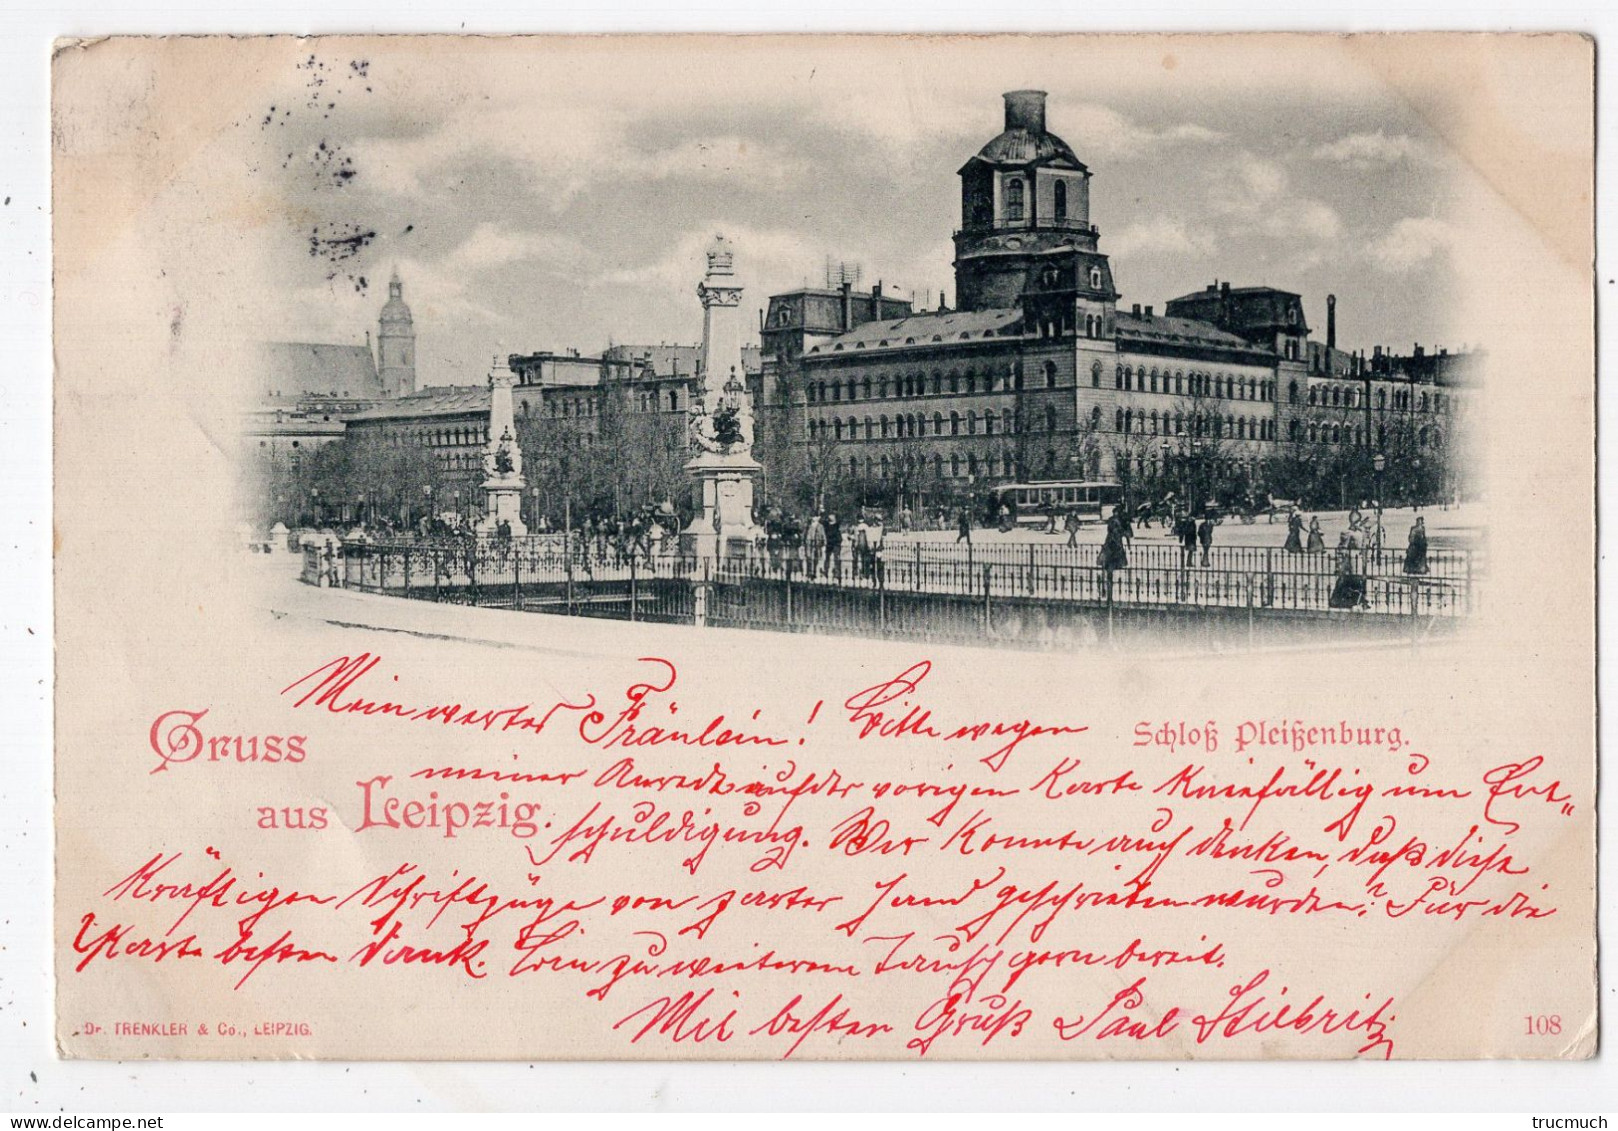 Mein wertes Fräulein! Bitte wegen
Schloß Pleißenburg.
Gruss
meiner Anrede auf der vorigen Karte Kniefällig um Ent-
aus Leipzig.
schuldigung. Wer konnte auch denken, daß diese
Kräftigen Schriftzüge von zarter Hand geschrieben wurden? Für die
Karte besten Dank. Bin zu weiterem Tausch gern bereit.
Mit besten Gruß Paul
Dr. TRENKLER & Co., LEIPZIG.
108
trucmuch